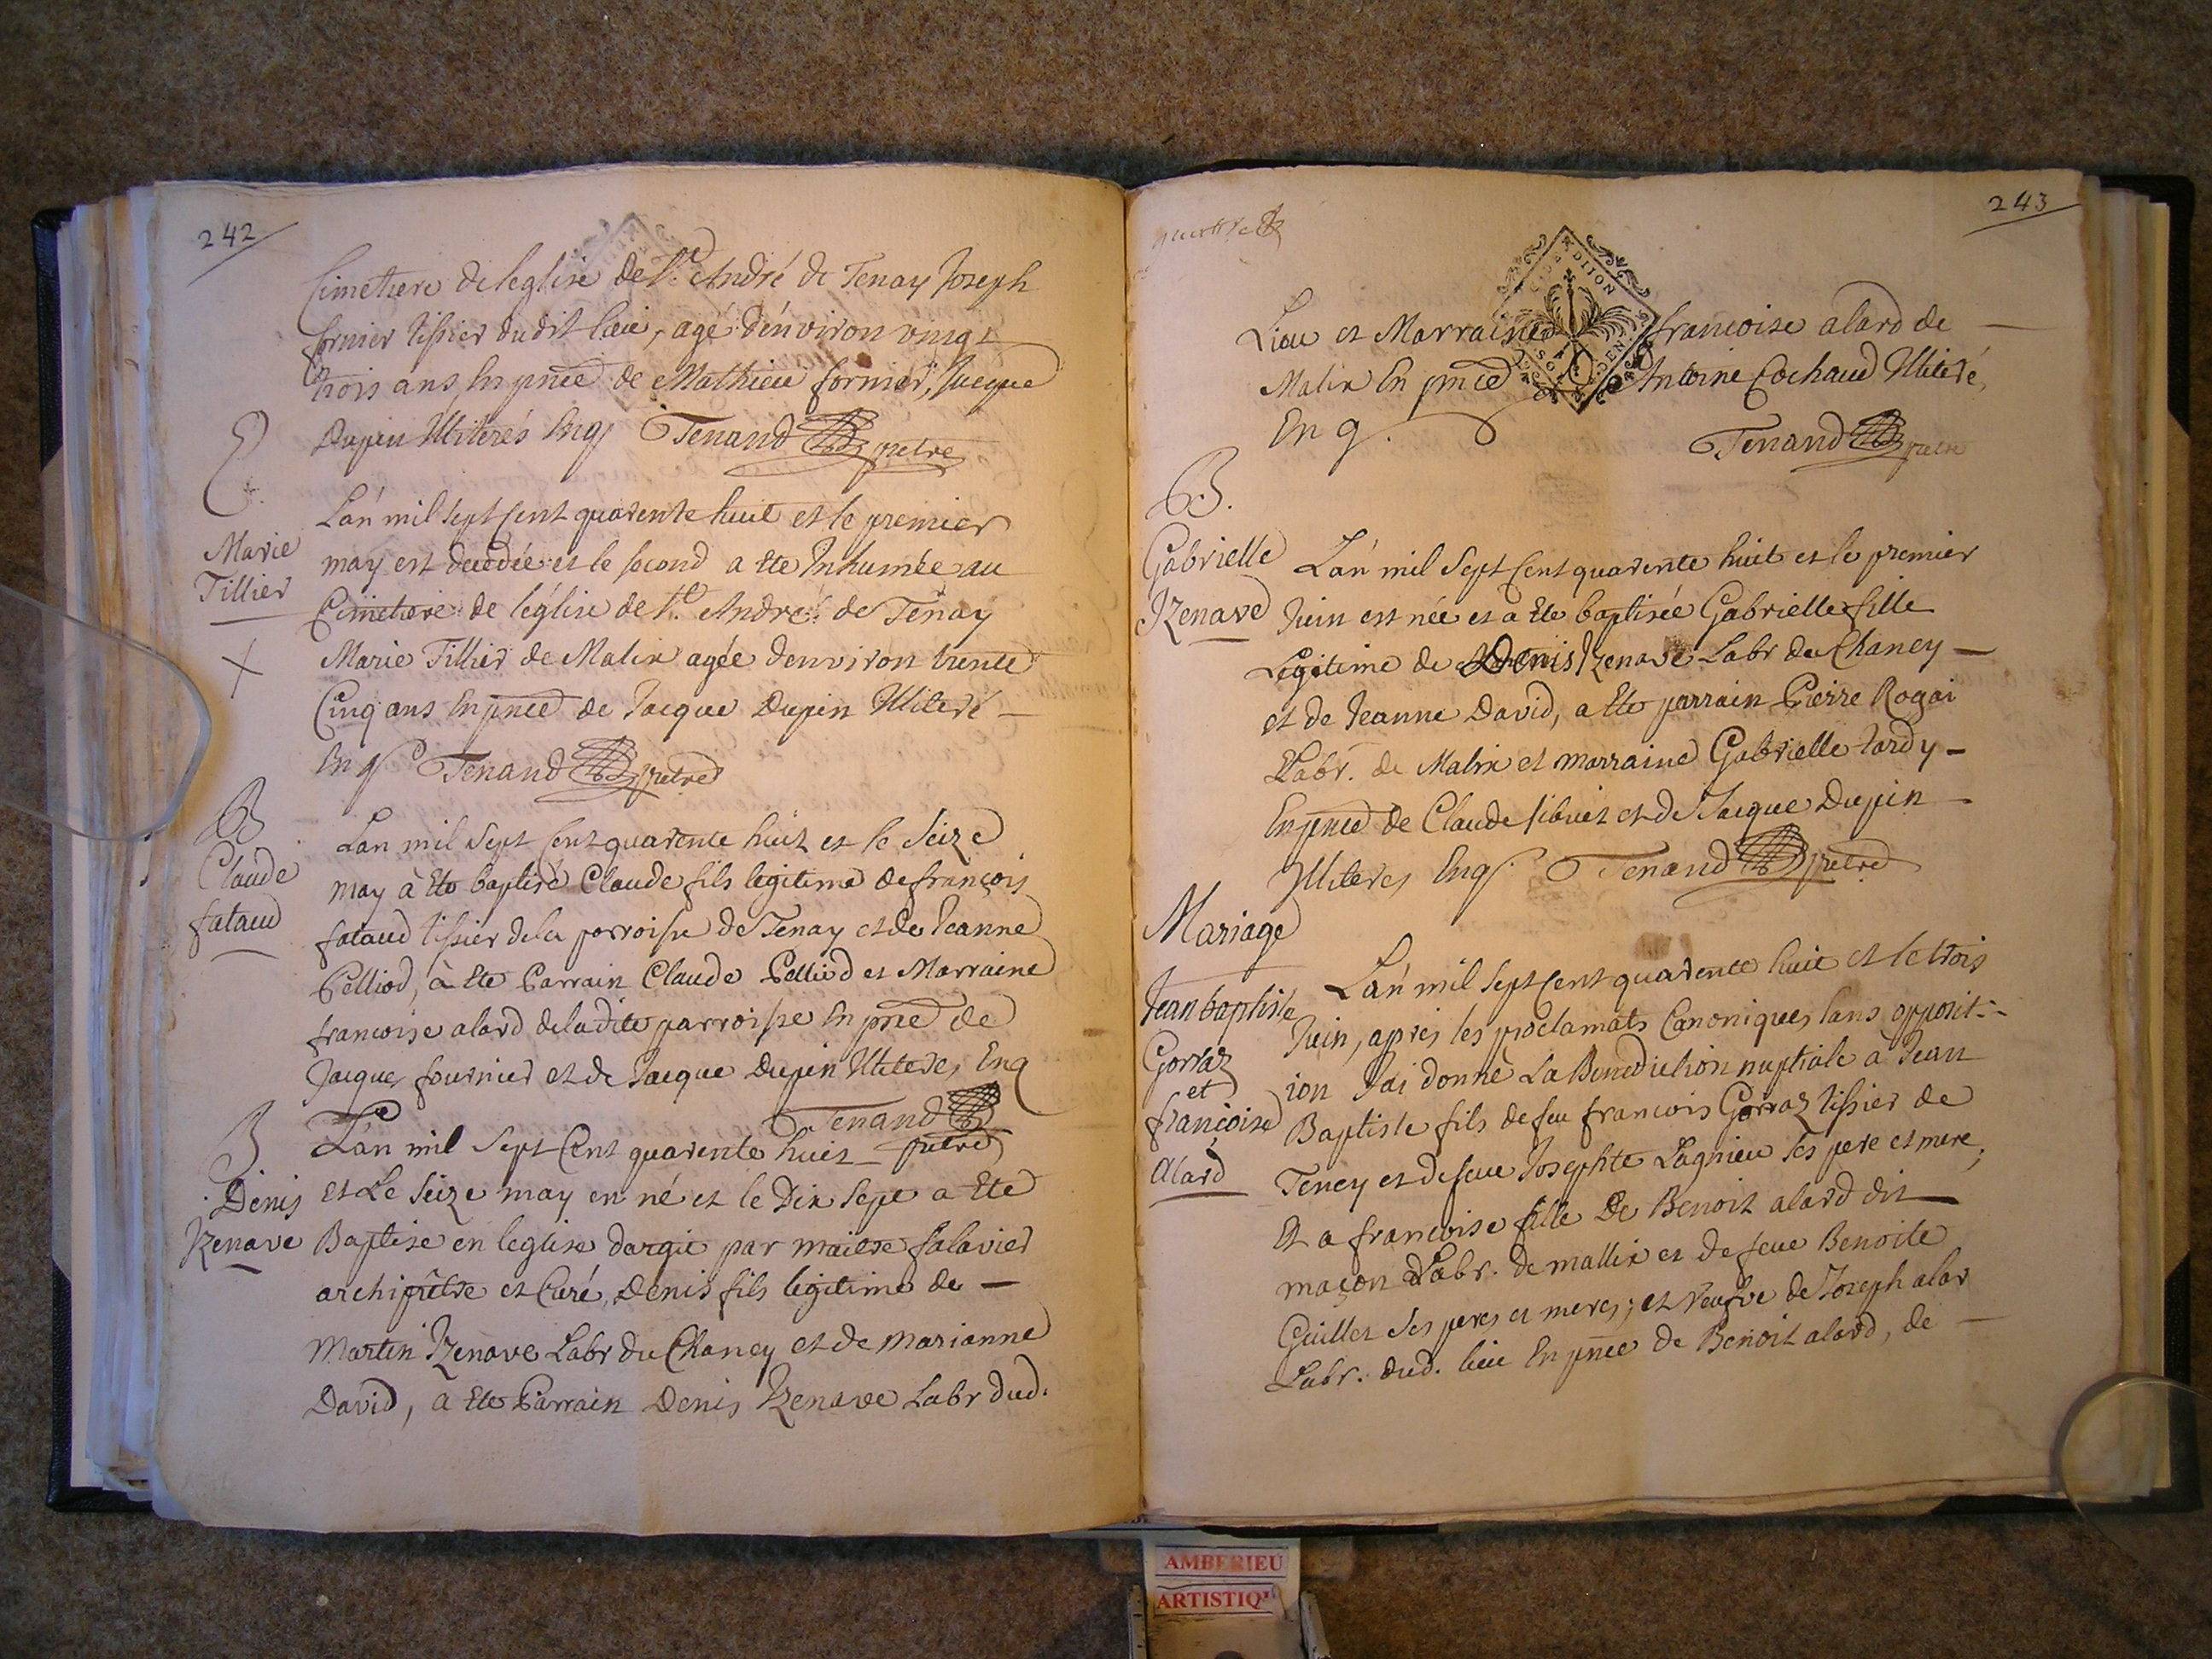 242
Cimetiere de leglise de St. André de Tenay Joseph
fornier tissier dudit lieu, agé d'environ vingt
trois ans, En pnce de Mathieu fornier, Jacque
Dupin Illiterés Enq Tenand pretre
Marie
Tillier
L'an mil sept cent quarente huit et le premier
may est decedée et le second a Ete Inhumée au
Cimetiere de léglise de St. André de Tenay
Marie Tillier de Malix agée denviron trente
Cinq ans En pnce de Jacque Dupin Illiteré —
Enq Tenand pretre
B
Claude
fataud
Lan mil sept cent quarente huit et le seize
may à Ete baptisé Claude fils legitime de françois
fataud tissier de la parroisse de Tenay et de Jeanne
Pelliod, à Ete Parrain Claude Pelliod et Marraine
francoise alard de ladite parroisse En pnce de
Jacque fournier et de Jacque Dupin Illiteres, Enq
Tenand
pretre
B
Denis
Izenave
L'an mil sept cent quarente huit —
et Le seize may en né et le Dix sept a Ete
Baptise en leglise dargis par maitre falavier
archiprêtre et Curé, Denis fils legitime de —
Martin Izenave Labr du Chaney et de marianne
David, a Ete Parrain Denis Izenave Labr dud.
243
DIJON
Lieu et Marraine francoise alard de —
Malix En pnce Antoine Cochaud Illiteré,
En q. Tenand pretre
B.
Gabrielle
Izenave
L'an mil sept cent quarente huit et le premier
Juin est née et a Ete baptisée Gabrielle fille
Legitime de Denis Izenave Labr du Chaney —
et de Jeanne David, a Ete parrain Pierre Rogai
Labr. de Malix et marraine Gabrielle tardy —
En pnce de Claude sibuet et de Jacque Dupin —
Illiteres Enq. Tenand pretre
Mariage
Jean baptiste
Gorraz
et
françoise
alard
L'an mil sept cent quarente huit et le trois
Juin, apres les proclamats Canoniques sans opposit-
ion Jai donné La Benediction nuptiale à Jean
Baptiste fils de feu francois Gorraz tissier de
Teney et de feue Josephte Lagnieu ses pere et mere,
Et a francoise fille De Benoit alard dit —
maçon Labr. de mallix et de feue Benoite
Guillet ses peres et meres; et veufve de Joseph alar
Labr. dud. lieu En pnce de Benoit alard, de —
AMBERIEU
ARTISTIQ